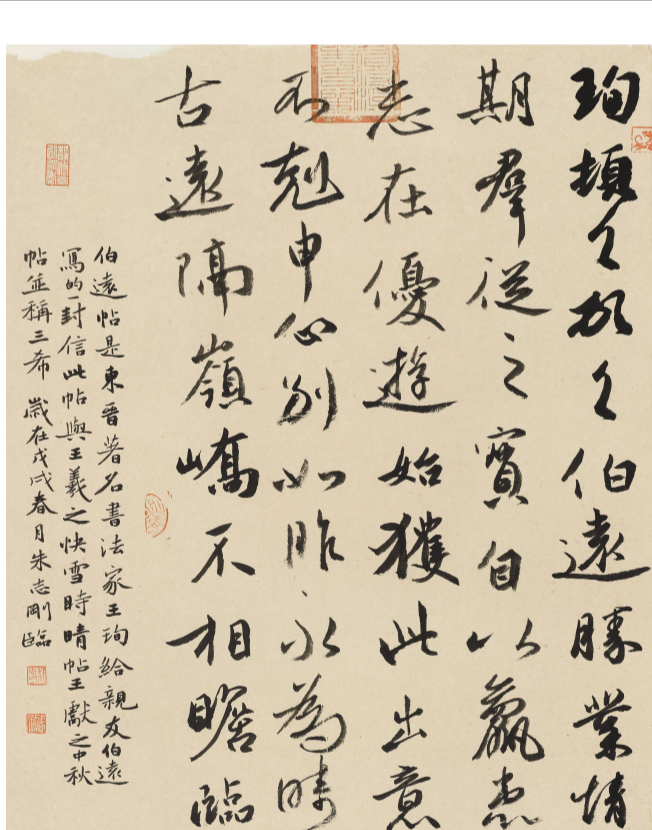 珣頓々頓々伯遠勝業情
期群從之寶自以羸患
志在優遊始獲此出意
不剋申心別如昨永為疇
古遠隔嶺嶠不相瞻臨
伯遠帖是東晉著名書法家王珣給親友伯遠
寫的一封信此帖與王羲之快雪時晴帖王獻之中秋
帖並稱三希 歲在戊戌春月朱志剛臨